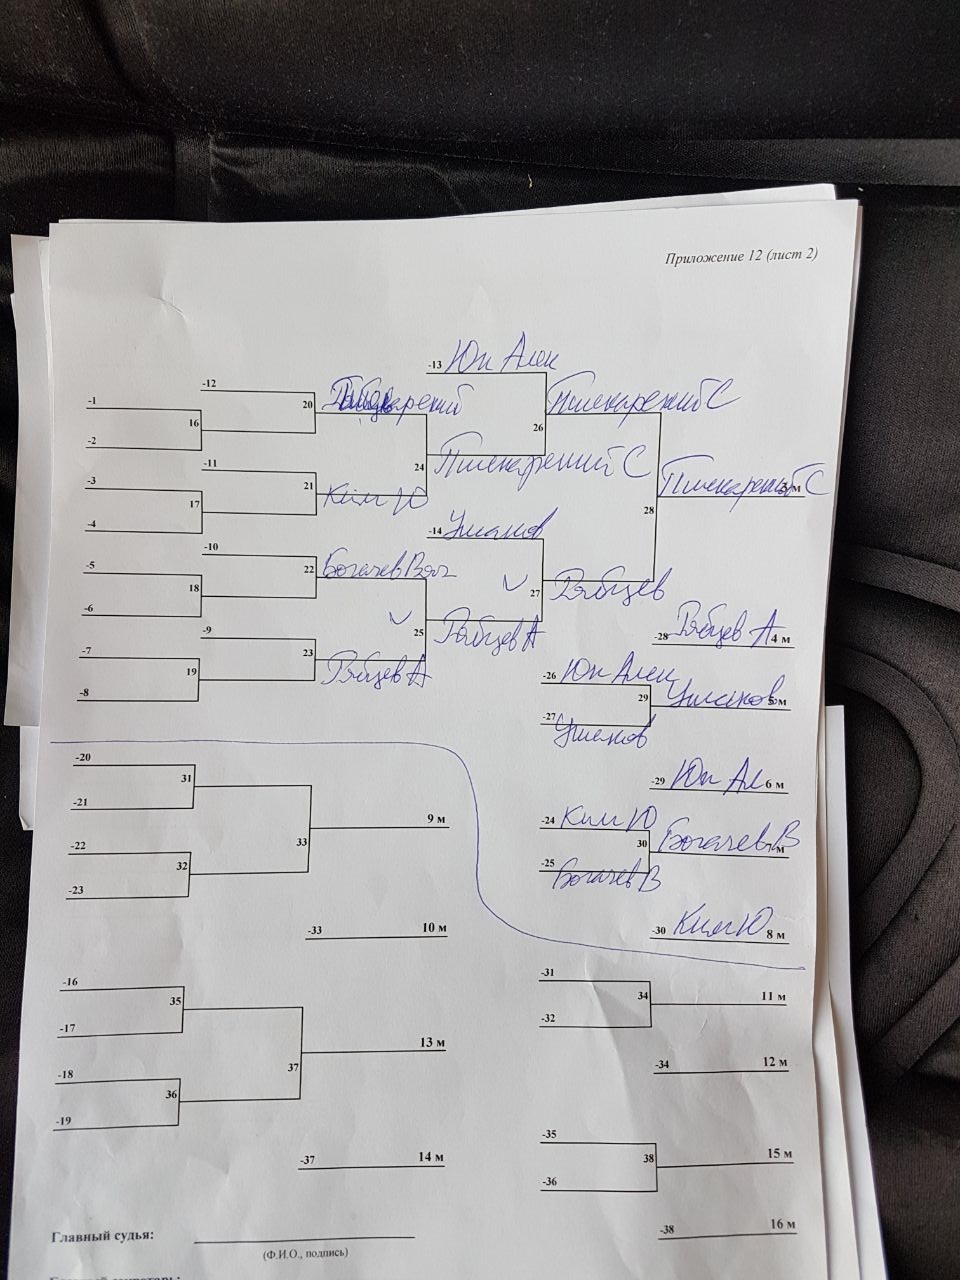 Приложение 12 (лист 2)
-13 Юн Алек
-12
20
-1
16
Пшекарский С
26
-2
-11
24
Пшекарский С
-3
21
Ким Ю
Пшекарский С 3 м
17
28
-4
-14 Ушаков
-10
22 Богачев Вяч
-5
18
27 Рябцев
-6
25 Рябцев А
-9
-28 Рябцев А 4 м
-7
23
Рябцев А
19
-26 Юн Алек
-8
29 Ушаков 5 м
-27 Ушаков
-20
31
-29 Юн Ал 6 м
-21
33
9 м
-24 Ким Ю
-22
30 Богачев В 7 м
32
-25 Богачев В
-23
-33 10 м
-30 Ким Ю 8 м
-16
-31
35
34 11 м
-17
-32
37
13 м
-18
-34 12 м
36
-19
-35
-37 14 м
38 15 м
-36
Главный судья:
-38 16 м
(Ф.И.О., подпись)